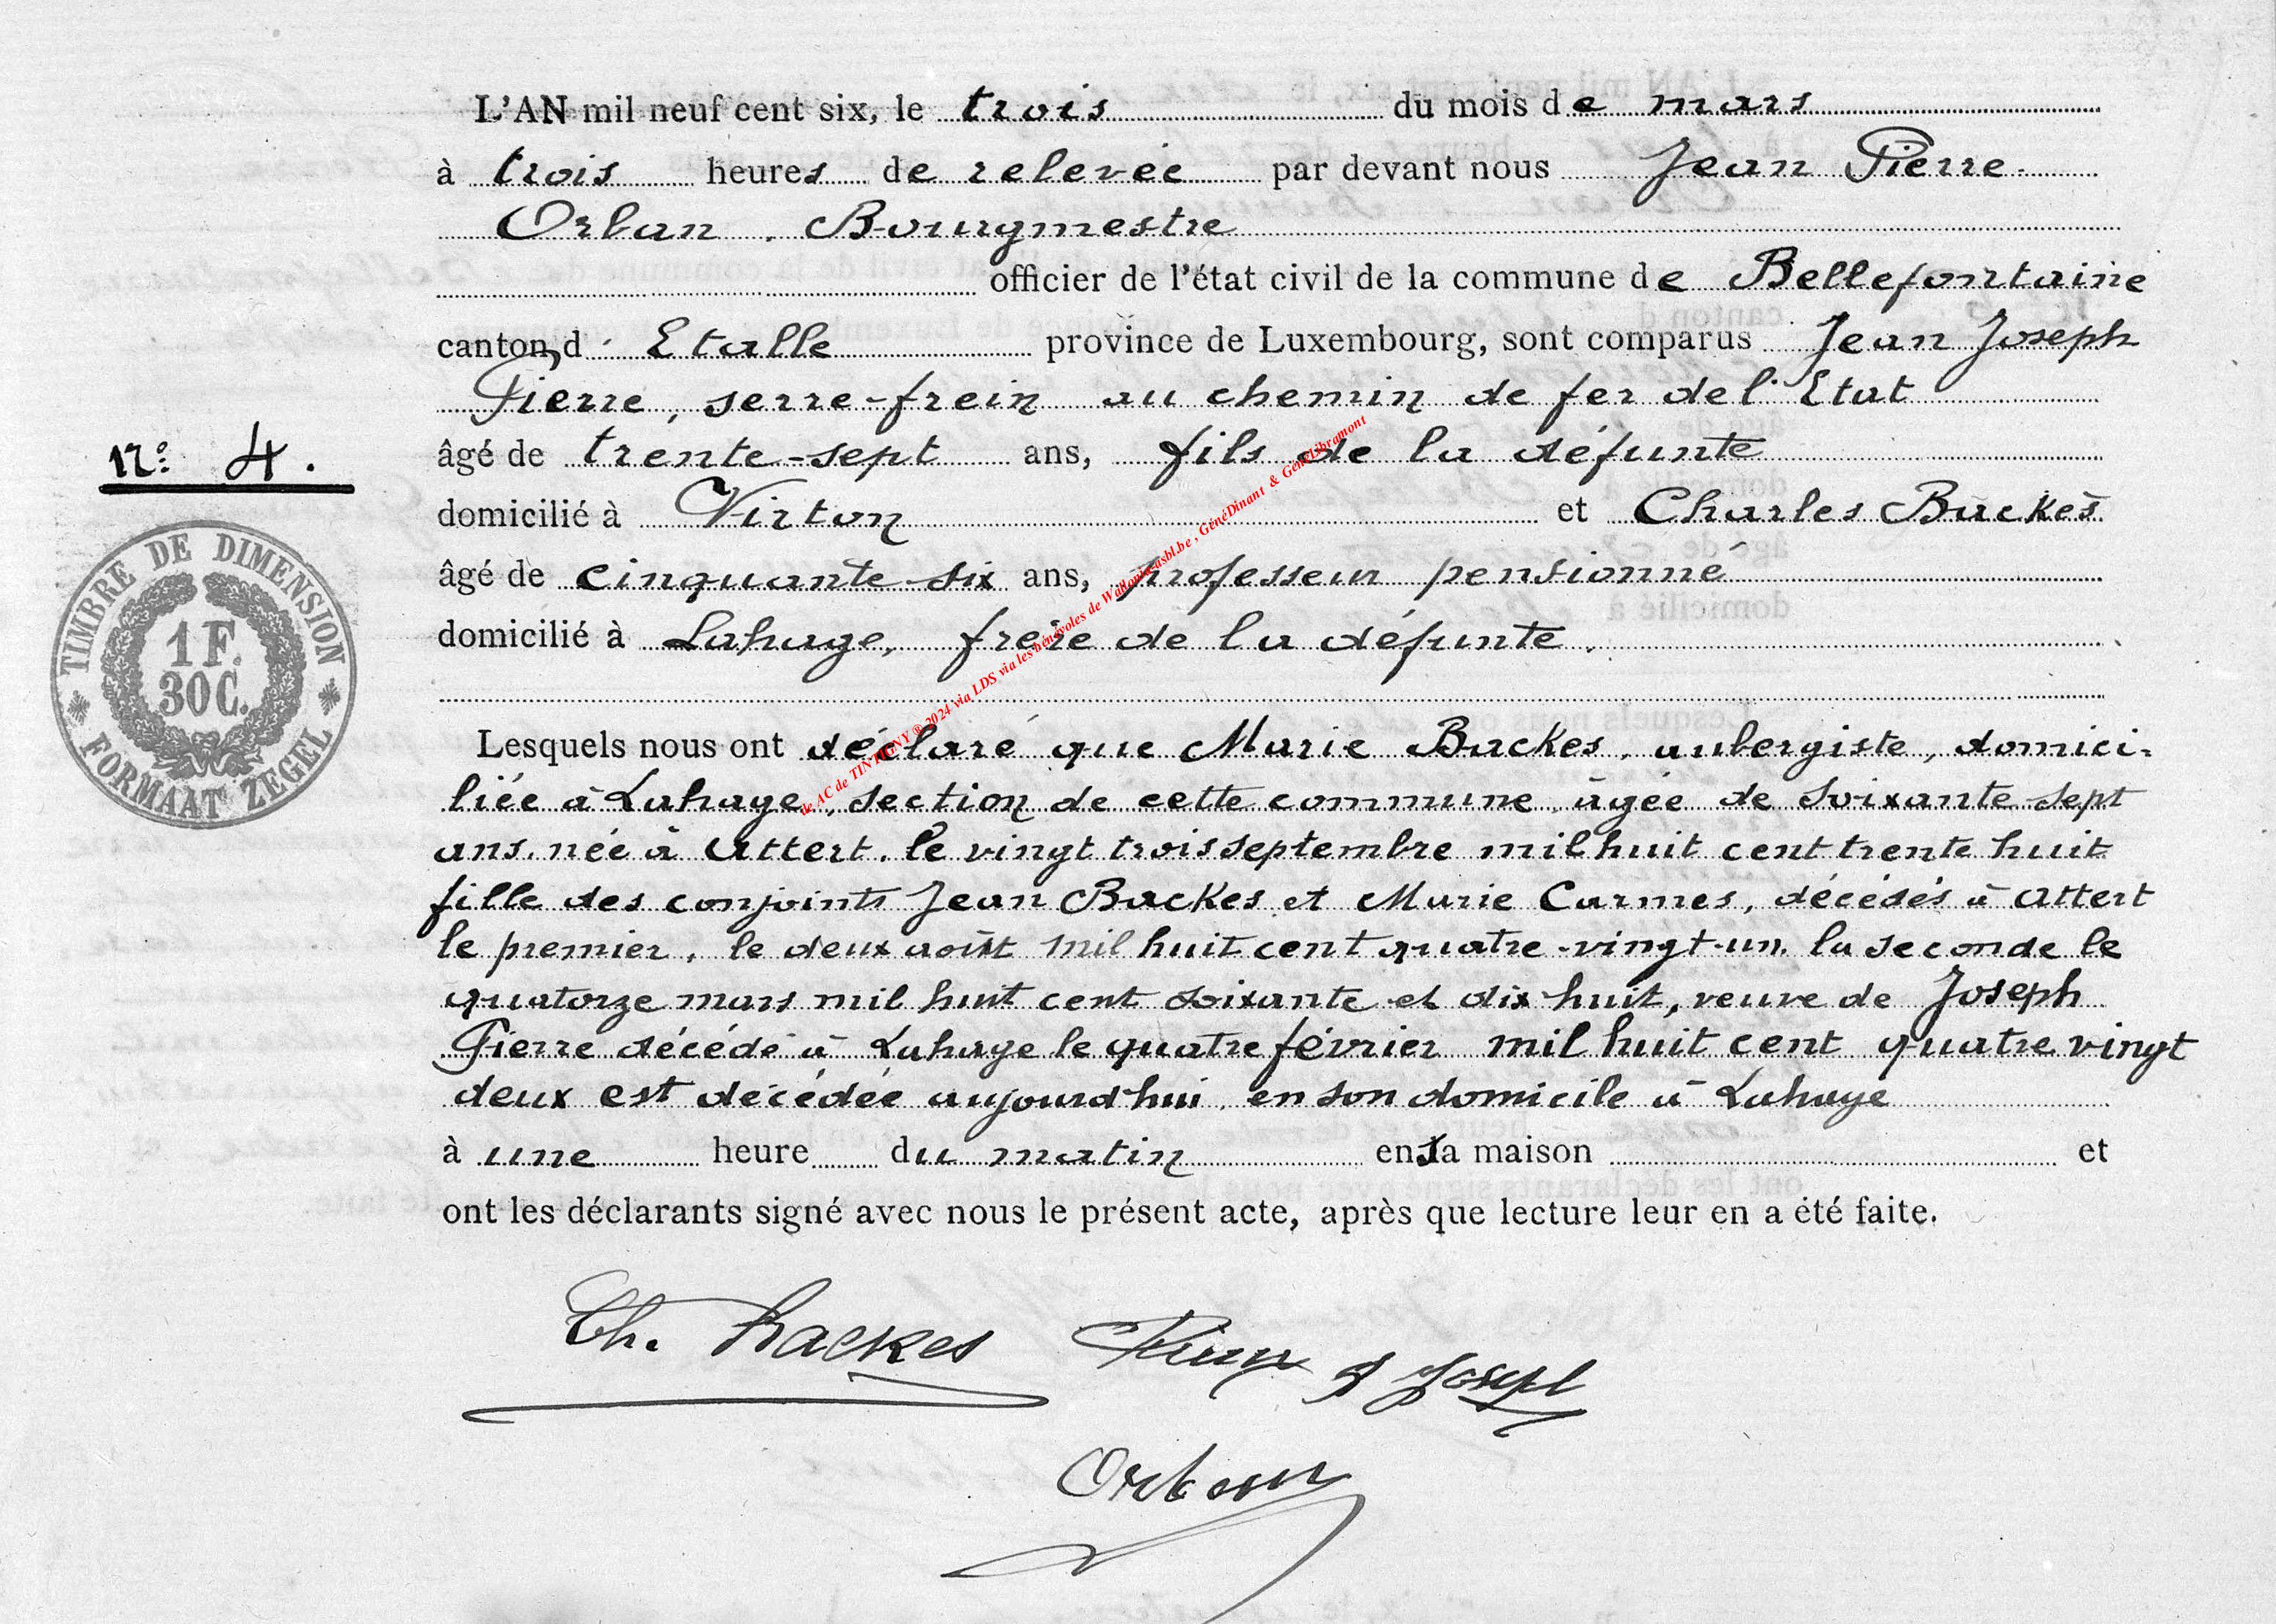 L'AN mil neuf cent six, le trois du mois de mars
à trois heures de relevée par devant nous Jean Pierre
Orban, Bourgmestre
officier de l'état civil de la commune de Bellefontaine
canton d'Etalle province de Luxembourg, sont comparus Jean Joseph
Pierre, serre-frein au chemin de fer de l'Etat
N° 4.
âgé de trente-sept ans, fils de la défunte
domicilié à Virton et Charles Backes
âgé de cinquante-six ans, professeur pensionné
domicilié à Lahage, frère de la défunte.
TIMBRE DE DIMENSION
1 F.
30 C.
FORMAAT ZEGEL
de AC de TINTIGNY ® 2024 via LDS via les bénévoles de Wallonia asbl.be, GénéDinant & GénéLibramont
Lesquels nous ont déclaré que Marie Backes, aubergiste, domici-
liée à Lahage, section de cette commune, âgée de soixante-sept
ans, née à Attert, le vingt trois septembre mil huit cent trente huit
fille des conjoints Jean Backes et Marie Carmes, décédés à Attert
le premier, le deux août mil huit cent quatre-vingt-un, la seconde le
quatorze mars mil huit cent soixante et dix huit, veuve de Joseph
Pierre décédé à Lahage le quatre février mil huit cent quatre vingt
deux est décédée aujourd'hui, en son domicile à Lahage
à une heure du matin en sa maison et
ont les déclarants signé avec nous le présent acte, après que lecture leur en a été faite.
Ch. Backes Pierre J Joseph
Orban